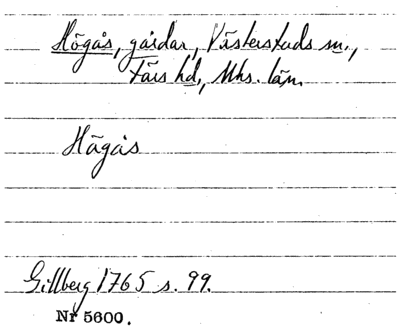 Högås, gårdar, Västerstads sn.,
Färs hd., Mhs. län.
Hägås
Gillberg 1765 s. 99.
Nr 5600.